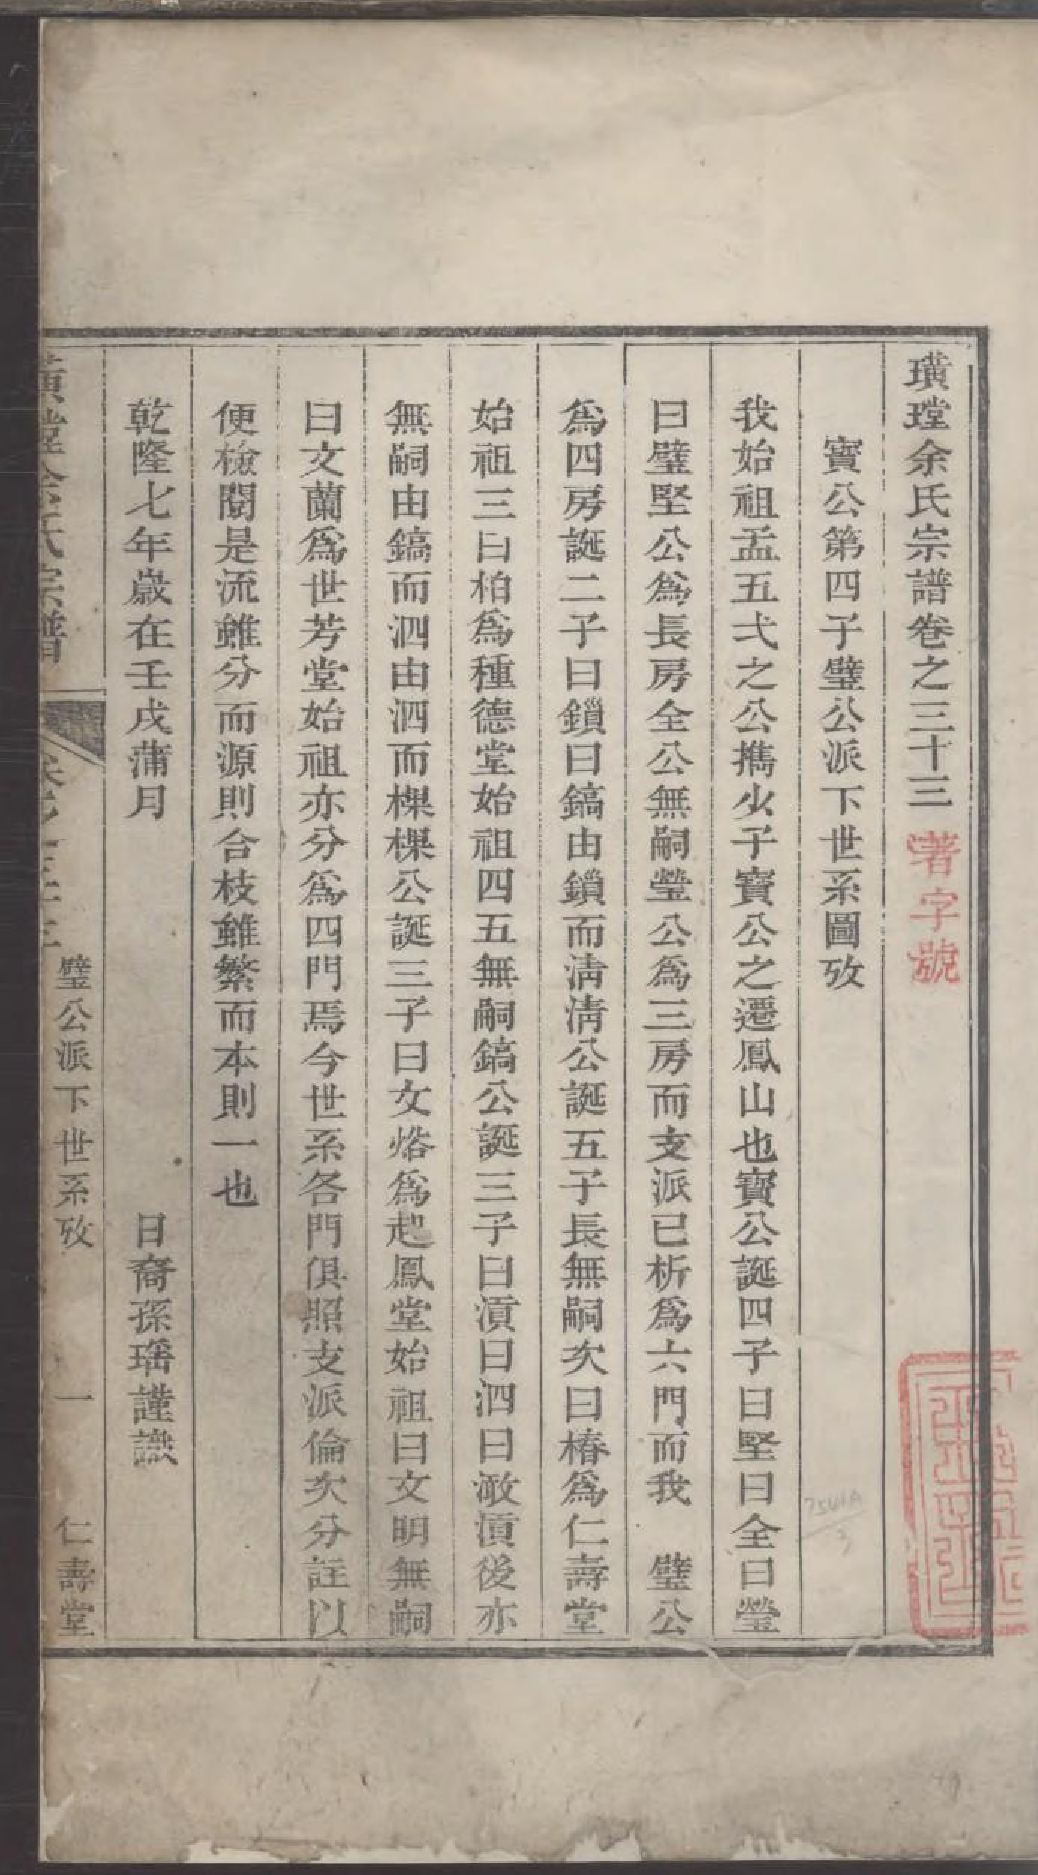 璜瑝余氏宗譜卷之三十三 著字號
寶公第四子璧公派下世系圖攷
我始祖孟五弌之公攜少子寶公之遷鳳山也寶公誕四子曰堅曰全曰瑩
曰璧堅公爲長房全公無嗣瑩公爲三房而支派已析爲六門而我 璧公
爲四房誕二子曰鎖曰鎬由鎖而淸淸公誕五子長無嗣次曰椿爲仁壽堂
始祖三曰柏爲種德堂始祖四五無嗣鎬公誕三子曰湏曰泗曰滶湏後亦
無嗣由鎬而泗由泗而樏樏公誕三子曰文焀爲起鳳堂始祖曰文明無嗣
曰文蘭爲世芳堂始祖亦分爲四門焉今世系各門俱照支派倫次分註以
便檢閱是流雖分而源則合枝雖繁而本則一也
乾隆七年歲在壬戌蒲月 日裔孫瑶謹識
璜瑝余氏宗譜 卷之三十三 璧公派下世系攷 一 仁壽堂